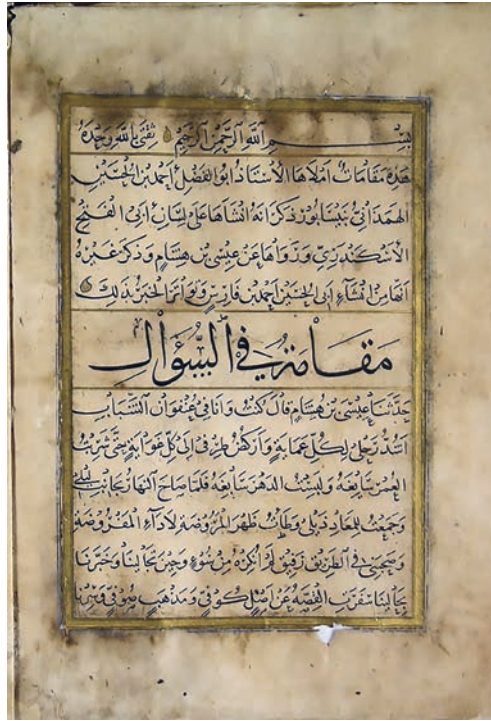 بسم الله الرحمن الرحيم ثقتي بالله وحده
هذه مقامات املاها الأستاذ ابو الفضل احمد بن الحسين
الهمذاني بنيسابور ذكر انه انشاها على لسان ابي الفتح
الاسكندري ورواها عن عيسى بن هشام وذكر غيره
انها من انشاء ابي الحسين احمد بن فارس وتواتر الخبر بذلك
مقامة في السؤال
حدثنا عيسى بن هشام قال كنت وانا في عنفوان الشباب
اشد رحلي لكل عماية واركض طرفي الى كل غواية حتى شربت
العمر سائغه ولبست الدهر سابغه فلما صاح النهار بجانب ليلي
وجمعت للمعاد ذيلي وطات ظهر المروضة لاداء المفروضة
وصحبني في الطريق رفيق لم انكره من سوء وحين تجالينا وخبرنا
بحالينا سفرت القصة عن اصل كوفي ومذهب صوفي وسرنا